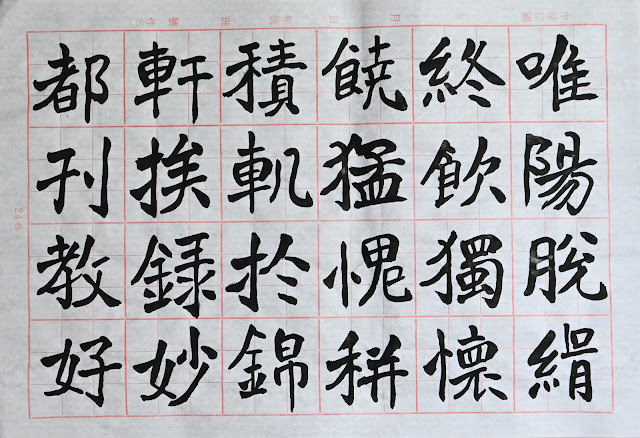 唯陽脫緝
終飲獨懷
饒猛愧耕
積軌於錦
軒挨録妙
都刊教好